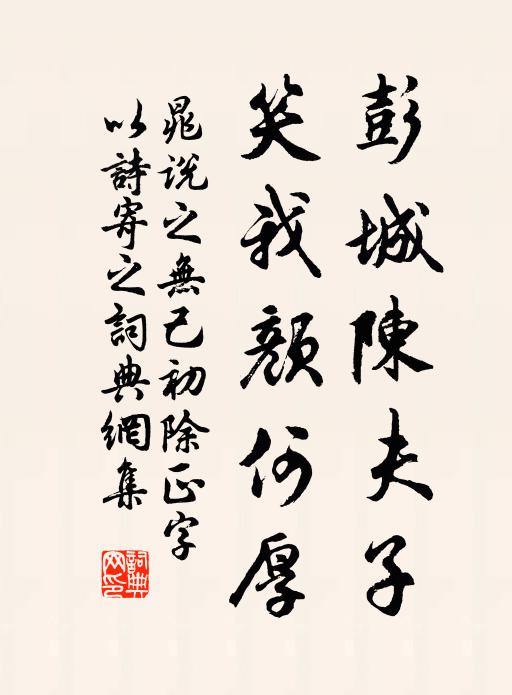 彭城陳夫子
笑我顏何厚
晁說之無已初除正字
以詩寄之詞典網集
詞典
网印